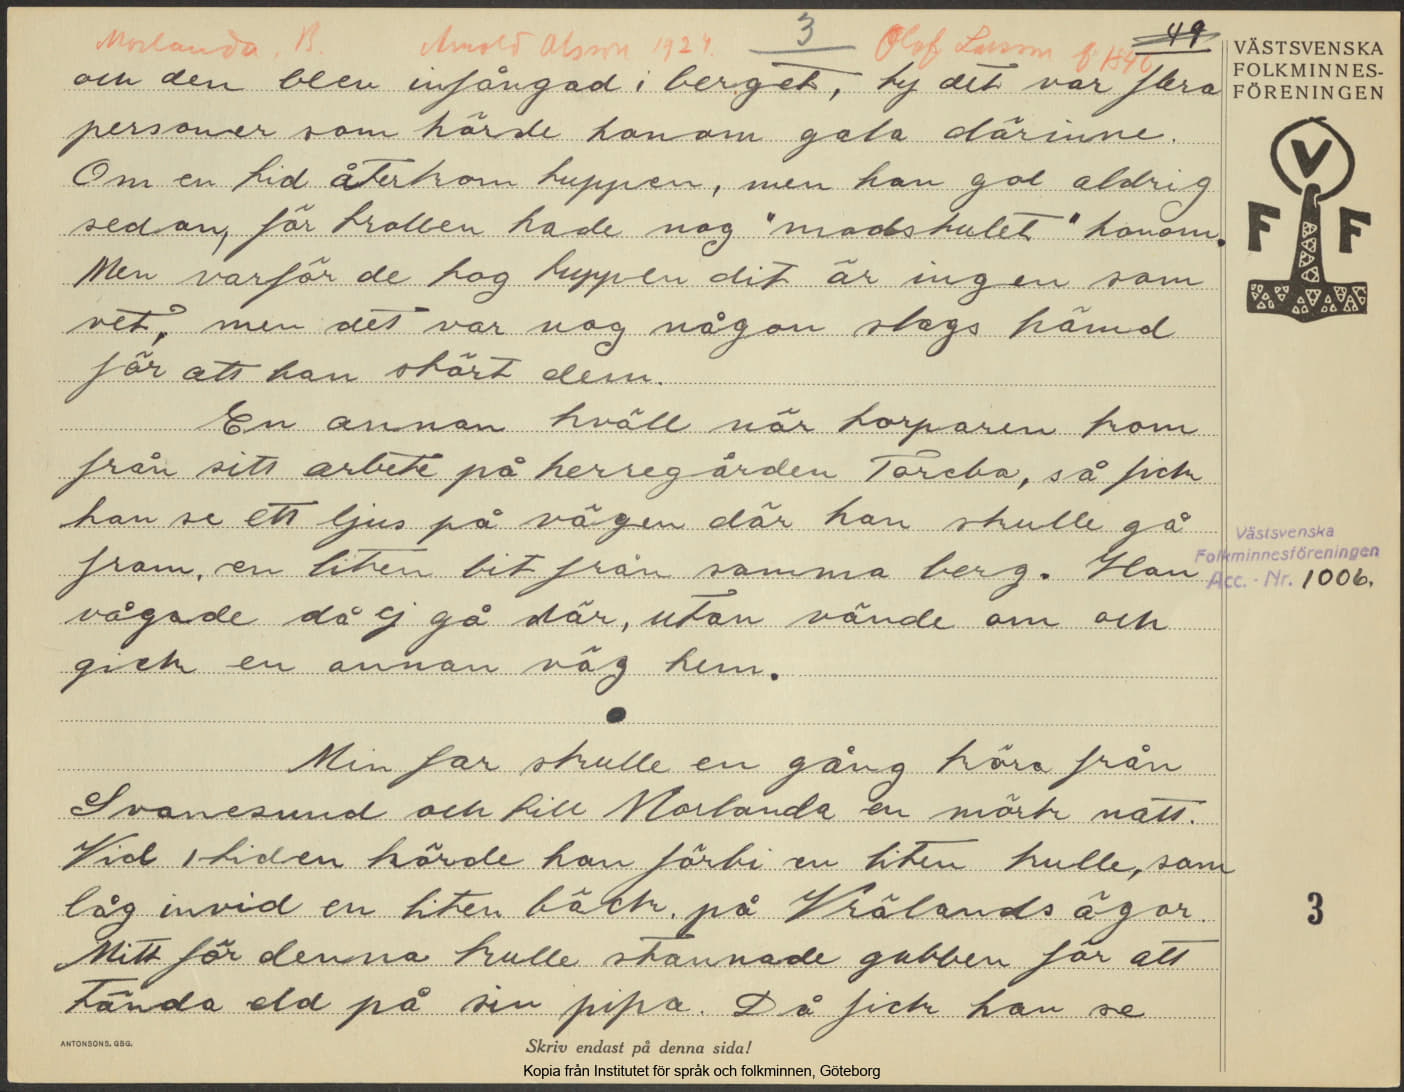 Morlanda. B. Arnold Olsson 1927. 3 Olof Larsson f 1846 49
och den blev infångad i berget, ty det var flera
personer som hörde honom gala därinne.
Om en tid återkom tuppen, men han gol aldrig
sedan, för trollen hade nog "modstulet" honom.
Men varför de tog tuppen dit är ingen som
vet, men det var nog någon slags hämd
för att han stört dem.
En annan kväll när torparen kom
från sitt arbete på herregården Torebo, så fick
han se ett ljus på vägen där han skulle gå
fram, en liten bit från samma berg. Han
vågade då ej gå där, utan vände om och
gick en annan väg hem.
Min far skulle en gång köra från
Svanesund och till Morlanda en mörk natt.
Vid 1 tiden körde han förbi en liten kulle, som
låg invid en liten bäck, på Vrälands ägor.
Mitt för denna kulle stannade gubben för att
tända eld på sin pipa. Då fick han se
VÄSTSVENSKA
FOLKMINNES-
FÖRENINGEN
V
F F
Västsvenska
Folkminnesföreningen
Acc. - Nr. 1006.
3
ANTONSONS. GBG.
Skriv endast på denna sida!
Kopia från Institutet för språk och folkminnen, Göteborg